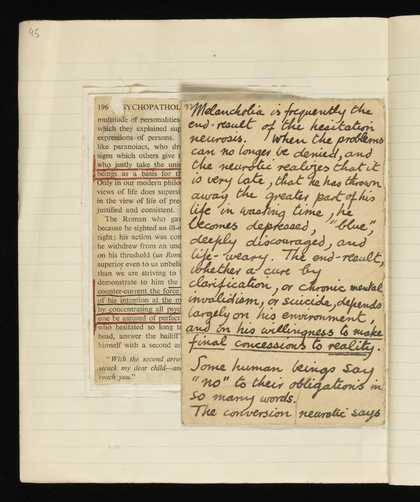 95
196 PSYCHOPATHOL
multitude of personalities
which they explained sup
expressions of persons.
like paranoiacs, who dr
signs which others give t
who justly take the unc
beings as a basis for th
Only in our modern philos
views of life does supersti
in the view of life of pre-
justified and consistent.
The Roman who gav
because he sighted an ill-o
right; his action was con
he withdrew from an und
on his threshold (un Rom
superior even to us unbelie
than we are striving to
demonstrate to him the
counter-current the force
of his intention at the m
by concentrating all psyc
one be assured of perfect
who hesitated so long t
head, answer the bailiff
himself with a second ar
"With the second arro
struck my dear child—and
reach you."
Melancholia is frequently the
end-result of the hesitation
neurosis. When the problems
can no longer be denied, and
the neurotic realizes that it
is very late, that he has thrown
away the greater part of his
life in wasting time, he
becomes depressed, "blue",
deeply discouraged, and
life-weary. The end-result,
whether a cure by
clarification, or chronic mental
invalidism, or suicide, depends
largely on his environment,
and on his willingness to make
final concessions to reality.
Some human beings say
"no" to their obligations in
so many words.
The conversion neurotic says